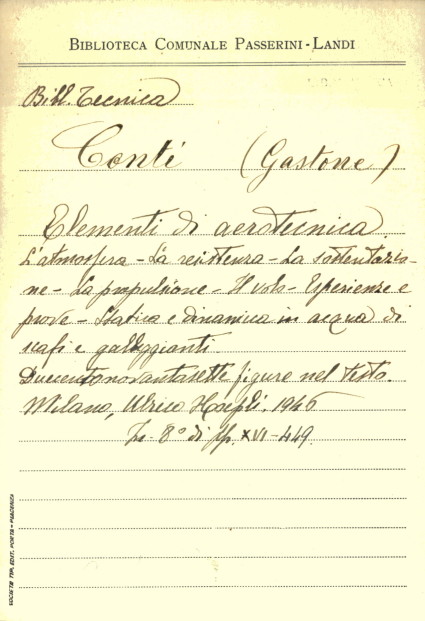 BIBLIOTECA COMUNALE PASSERINI-LANDI
Bibl. Tecnica
Conti (Gastone)
Elementi di aerotecnica.
L'atmosfera - La resistenza - La sostentazio-
ne - La propulsione - Il volo - Esperienze e
prove - Statica e dinamica in acqua di
scafi e galleggianti.
Duecentonovantasette figure nel testo.
Milano, Ulrico Hoepli, 1946
In-8° di pp. XVI-449.
SOCIETÀ TIP. EDIT. PORTA - PIACENZA